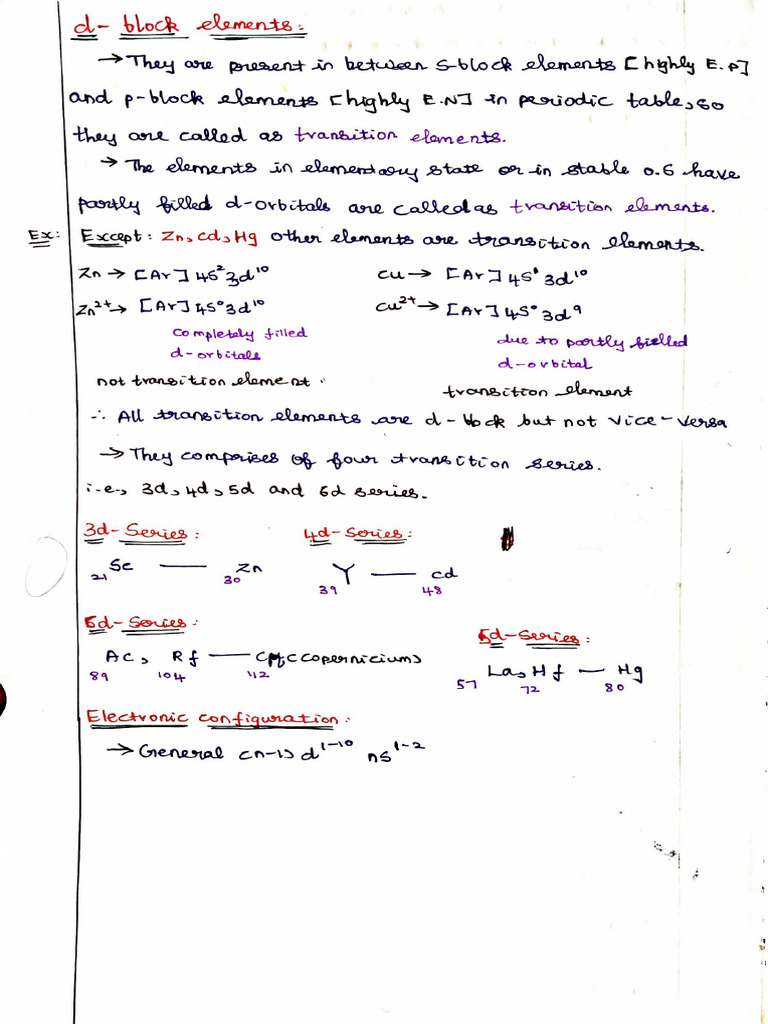 d- block elements:
→ They are present in between s-block elements [highly E.P]
and p-block elements [highly E.N] in periodic table, so
they are called as transition elements.
→ The elements in elementary state or in stable O.S have
partly filled d-orbitals are called as transition elements.
Ex: Except: Zn, Cd, Hg other elements are transition elements.
Zn → [Ar] 4s² 3d¹⁰ Cu → [Ar] 4s¹ 3d¹⁰
Zn²⁺ → [Ar] 4s⁰ 3d¹⁰ Cu²⁺ → [Ar] 4s⁰ 3d⁹
completely filled due to partly filled
d-orbitals d-orbital
not transition element. transition element
∴ All transition elements are d-block but not vice-versa
→ They comprises of four transition series.
i.e., 3d, 4d, 5d and 6d series.
3d-Series: 4d-Series:
₂₁Sc — ₃₀Zn ₃₉Y — ₄₈Cd
6d-Series: 5d-Series:
₈₉Ac, ₁₀₄Rf — ₁₁₂Cn(copernicium) ₅₇La, ₇₂Hf — ₈₀Hg
Electronic configuration:
→ General (n-1) d¹⁻¹⁰ ns¹⁻²